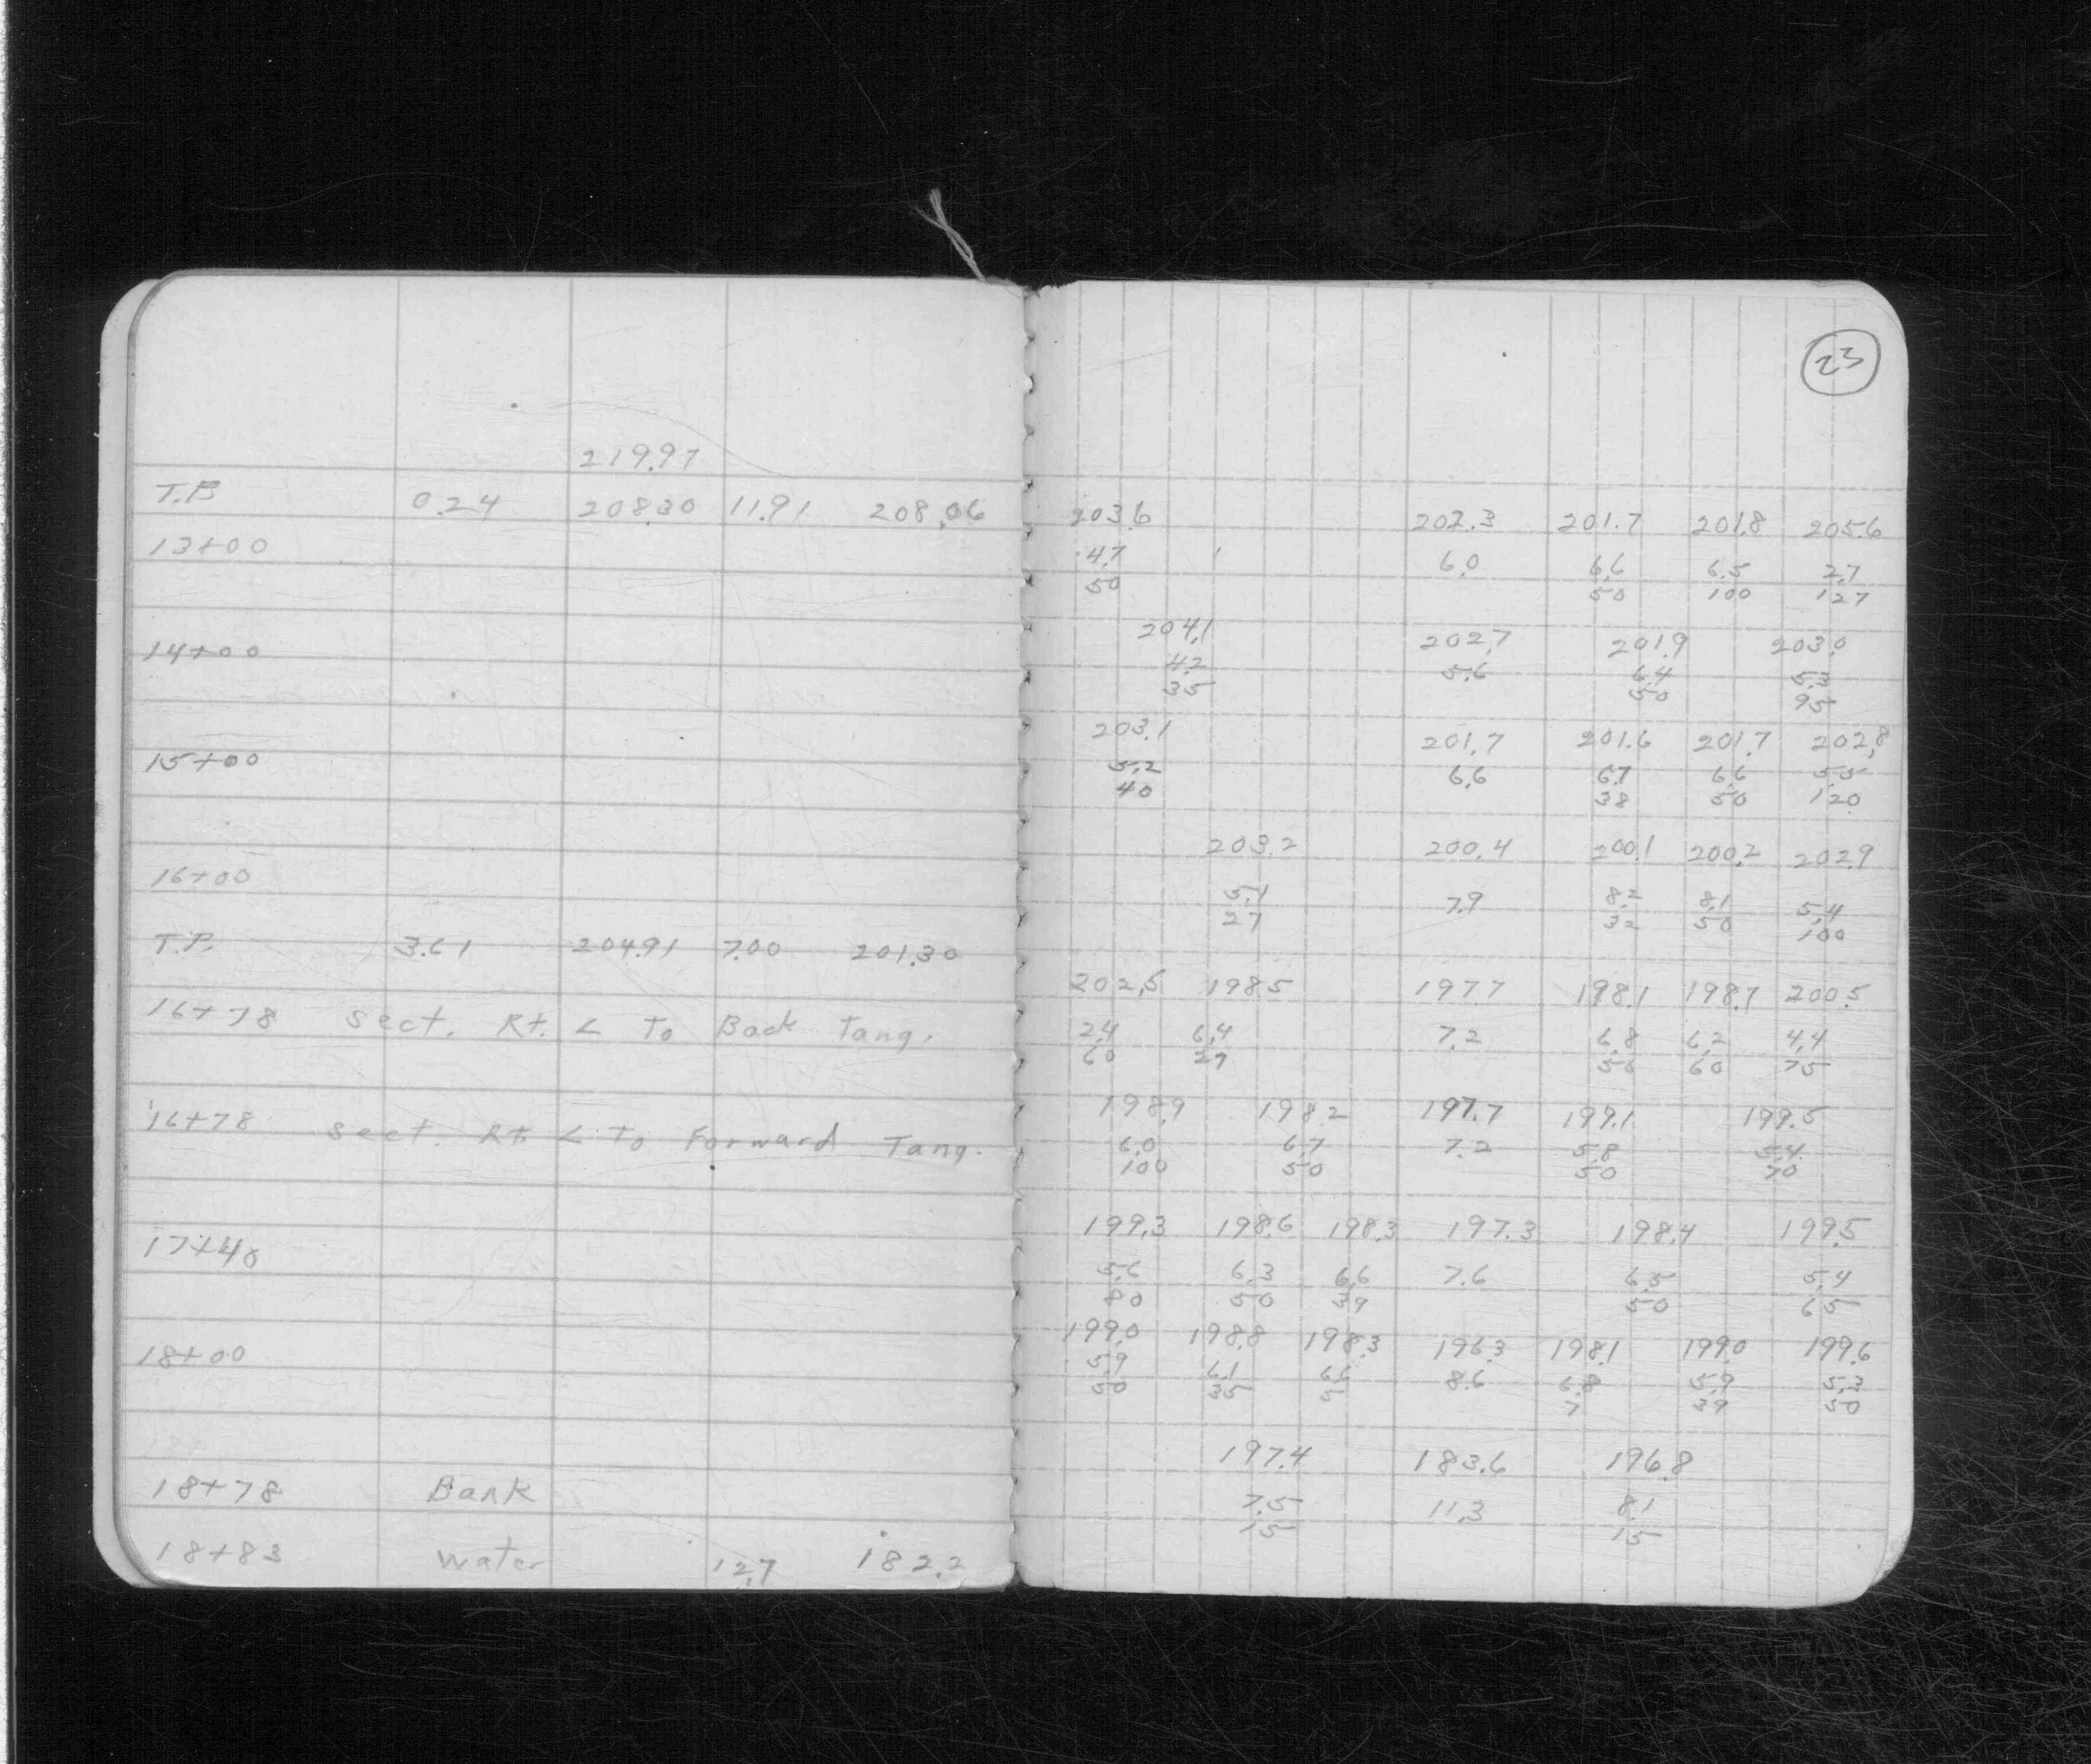 219.97
T.P. 0.24 208.30 11.91 208.06
13+00
14+00
15+00
16+00
T.P. 3.61 204.91 7.00 201.30
16+78 Sect. Rt. < To Back Tang.
16+78 Sect. Rt. < To Forward Tang.
17+40
18+00
18+78 Bank
18+83 Water 12.7 182.2
23
203.6 202.3 201.7 201.8 205.6
4.7 6.0 6.6 6.5 2.7
50 50 100 127
204.1 202.7 201.9 203.0
4.2 5.6 6.4 5.3
35 50 95
203.1 201.7 201.6 201.7 202.8
5.2 6.6 6.7 6.6 5.5
40 38 50 120
203.2 200.4 200.1 200.2 202.9
5.1 7.9 8.2 8.1 5.4
27 32 50 100
202.5 198.5 197.7 198.1 198.7 200.5
2.4 6.4 7.2 6.8 6.2 4.4
60 29 50 60 75
198.9 198.2 197.7 199.1 199.5
6.0 6.7 7.2 5.8 5.4
100 50 50 70
199.3 198.6 198.3 197.3 198.4 199.5
5.6 6.3 6.6 7.6 6.5 5.4
80 50 39 50 65
199.0 198.8 198.3 196.3 198.1 199.0 199.6
5.9 6.1 6.6 8.6 6.8 5.9 5.3
50 35 5 7 39 50
197.4 183.6 196.8
7.5 11.3 8.1
15 15